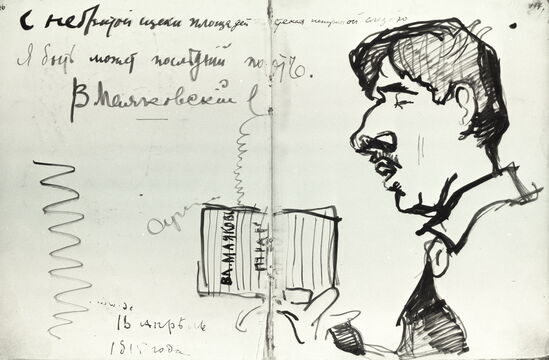 С небритой щеки площадей стекая ненужной слезою
Я быть может последний поэтъ.
В Маяковскій
ВЛ. МАЯКОВС
13 апрѣль
1915 года